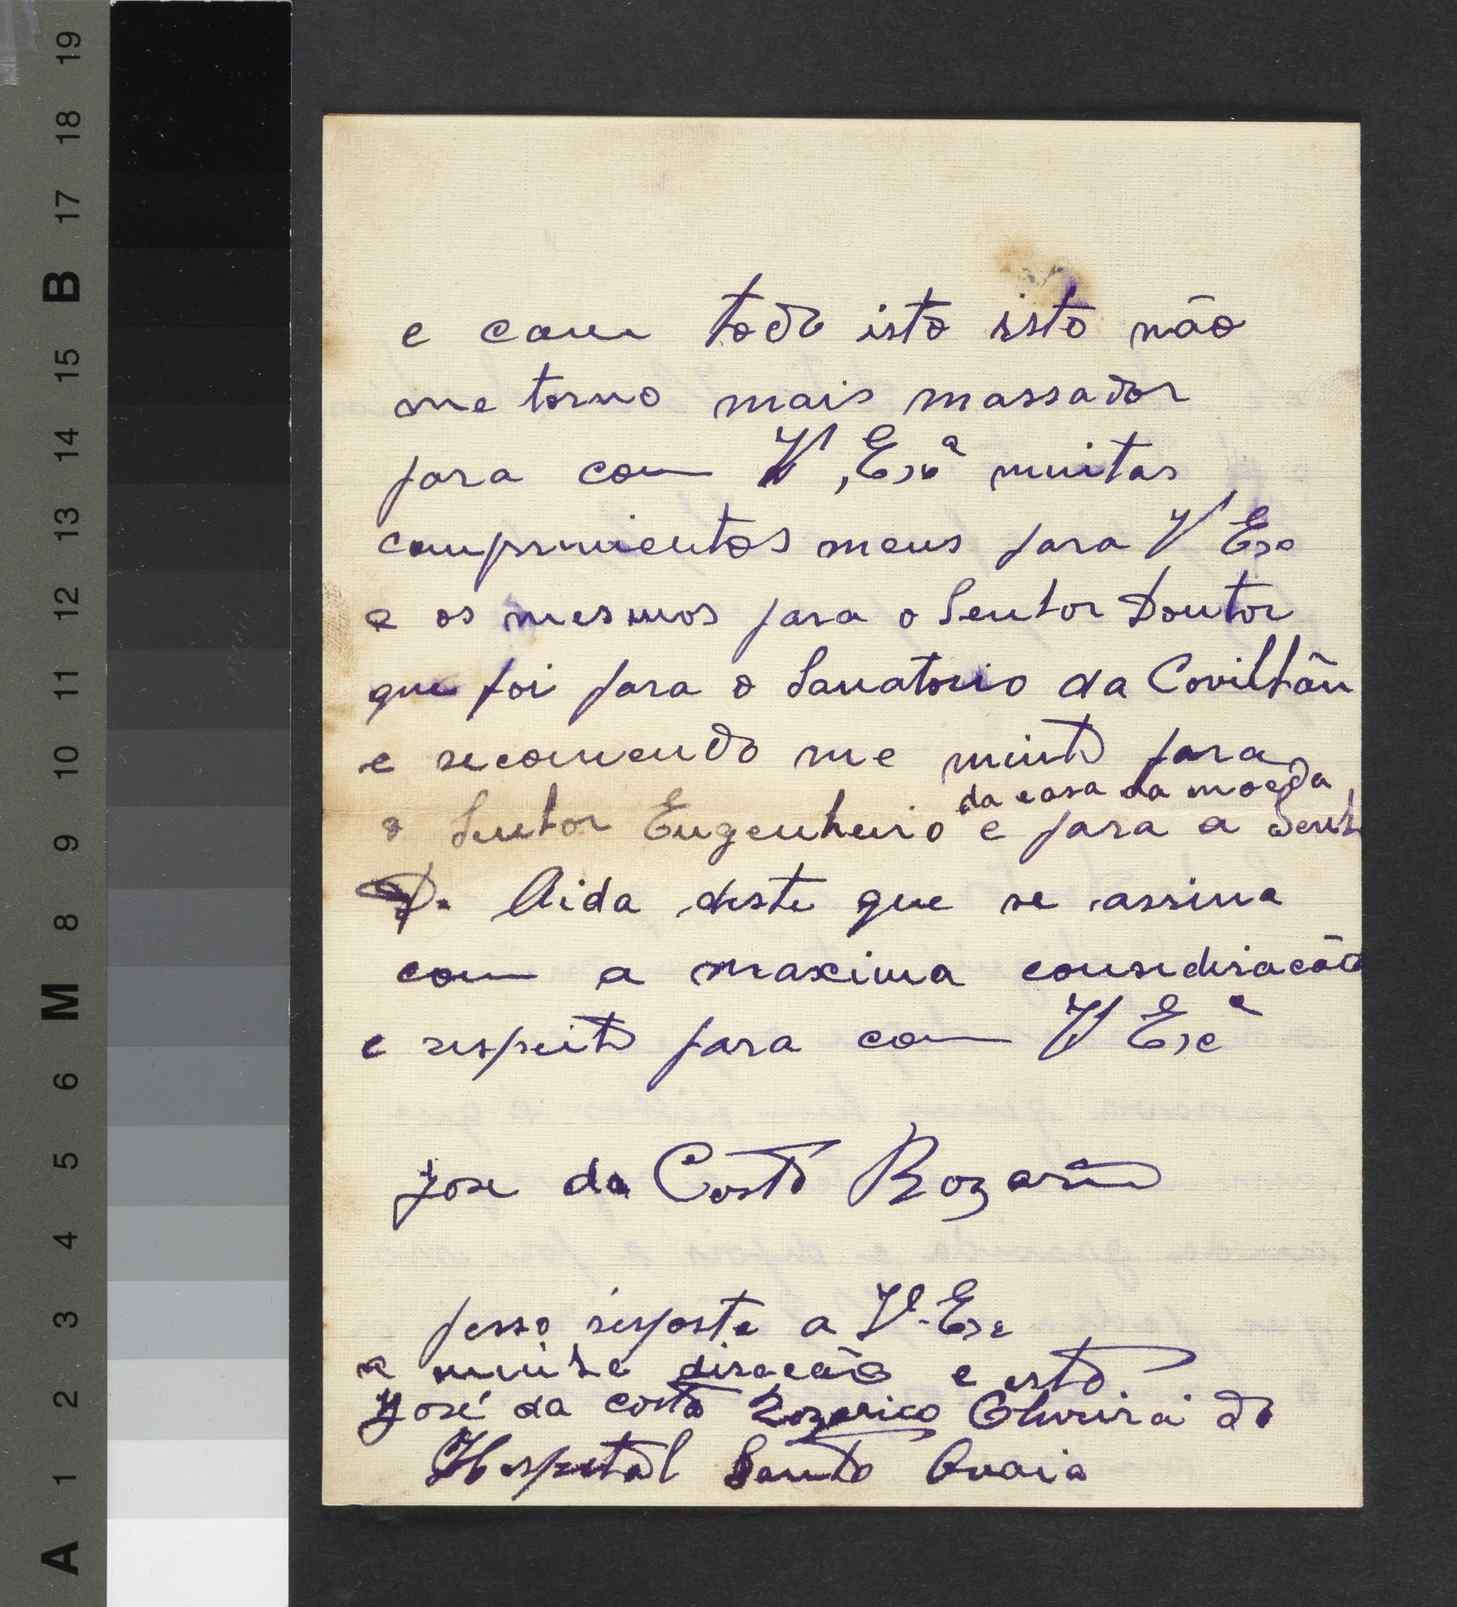 e com todo isto isto não
me torno mais massador
para com V, Exª muitas
comprimentos meus para V Exa
e os mesmos para o Senhor Doutor
que foi para o Sanatorio da Covilhãn
e recomendo me muito para
da casa da moeda
o Senhor Engenheiro e para a Senh
D. Aida deste que se assina
com a maxima consideracão
e respeito para com V Excª
Jose da Costa Rozario
pesso resposta a V. Exa
a minha diracão e esta
José da costa Oliveira do
Hospital Santo
A 1 2 3 4 5 6 M 8 9 10 11 12 13 14 15 B 17 18 19